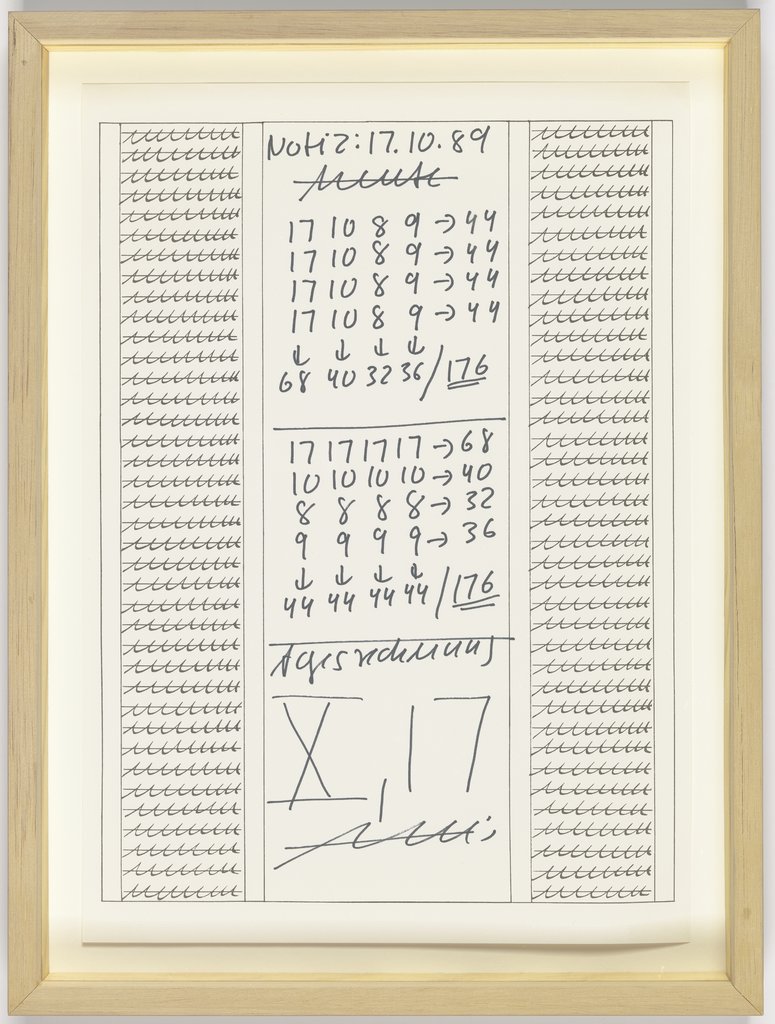 Notiz: 17.10.89
heute
17 10 8 9 → 44
17 10 8 9 → 44
17 10 8 9 → 44
17 10 8 9 → 44
↓ ↓ ↓ ↓
68 40 32 36 / 176
17 17 17 17 → 68
10 10 10 10 → 40
8 8 8 8 → 32
9 9 9 9 → 36
↓ ↓ ↓ ↓
44 44 44 44 / 176
Tagesrechnung
X, 17